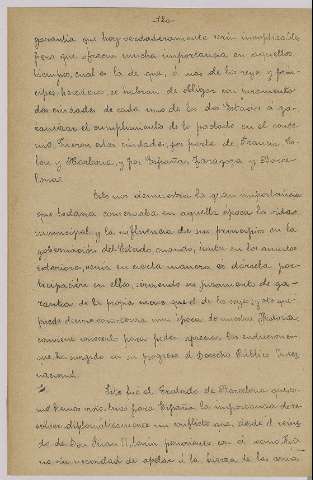 120
garantía que hoy verdaderamente serían inaplicables
pero que ofrecen mucha importancia en aquellos
tiempos, cual es la de que, á más de los reyes y prín-
cipes herederos se habían de obligar con juramento
dos ciudades de cada uno de los dos Estados á ga-
rantizar el cumplimiento de lo pactado en el conve-
nio. Fueron estas ciudades, por parte de Francia
y Narbona, y por España, Zaragoza y Barce-
lona.
Esto nos demuestra la gran importancia
que todavía conservaba en aquella época la vida
municipal y la influencia de sus principios en la
gobernación del Estado, cuando, hasta en los asuntos
exteriores, tenía en cierta manera es directa par-
ticipación en ellos, sirviendo su juramento de ga-
rantía de la propia manera que el de los reyes, y esto que
puede decirse caracteriza una época de nuestra Historia,
conviene conocerlo para poder apreciar las
que ha surgido en su progreso el Derecho Público Inter-
nacional.
Este fué el Tratado de Barcelona que co-
mo hemos visto tuvo para España la importancia de re-
solver diplomáticamente un conflicto que, desde el reina-
do de Don Juan II, tenía pendiente con el
na sin necesidad de apelar á la fuerza de las arma